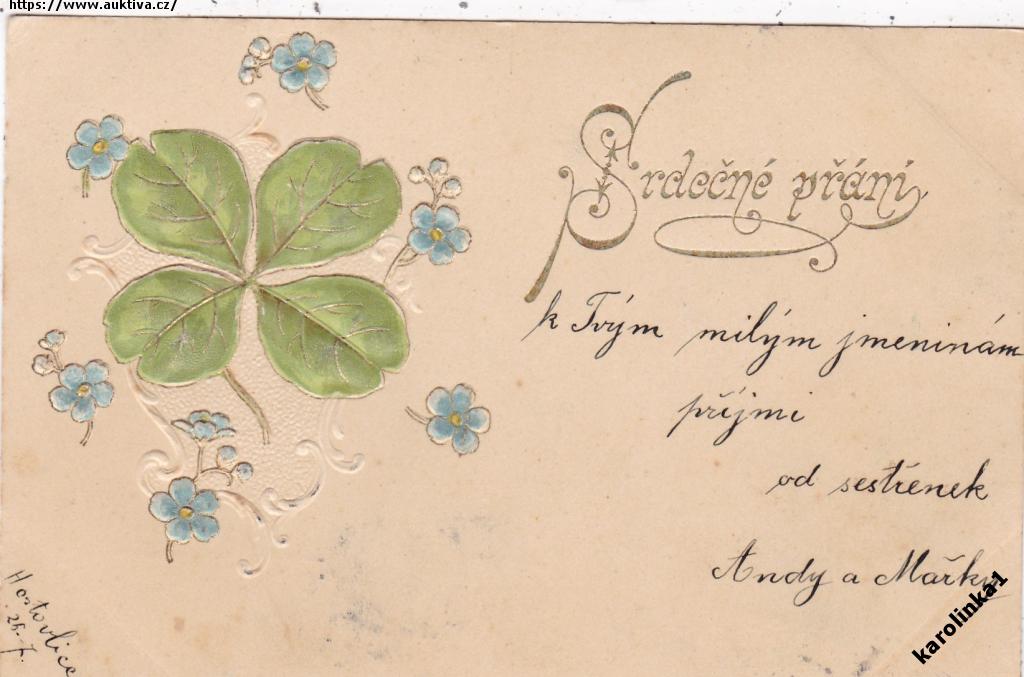 https://www.auktiva.cz/
Srdečné přání
k Tvým milým jmeninám
přijmi
od sestřenek
Andy a Mařky
Hostovlice
25. 7.
karolinka1